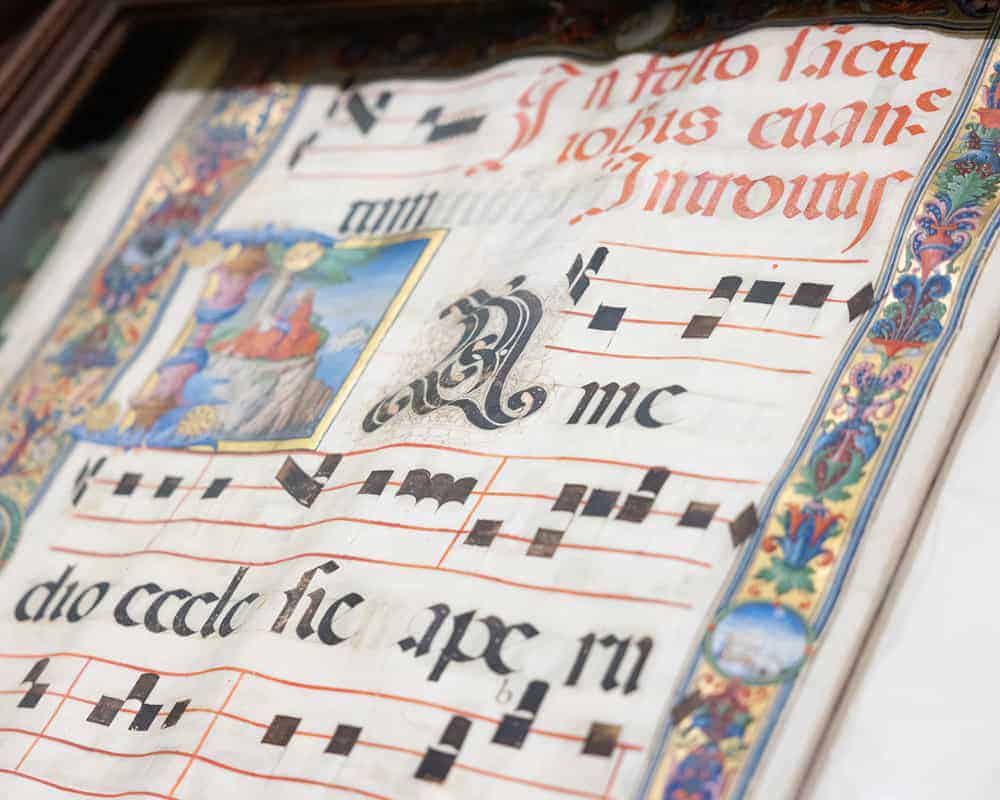 In festo sācti
iohis euanc
Introitus
IN me
dio eccle sie ape ru